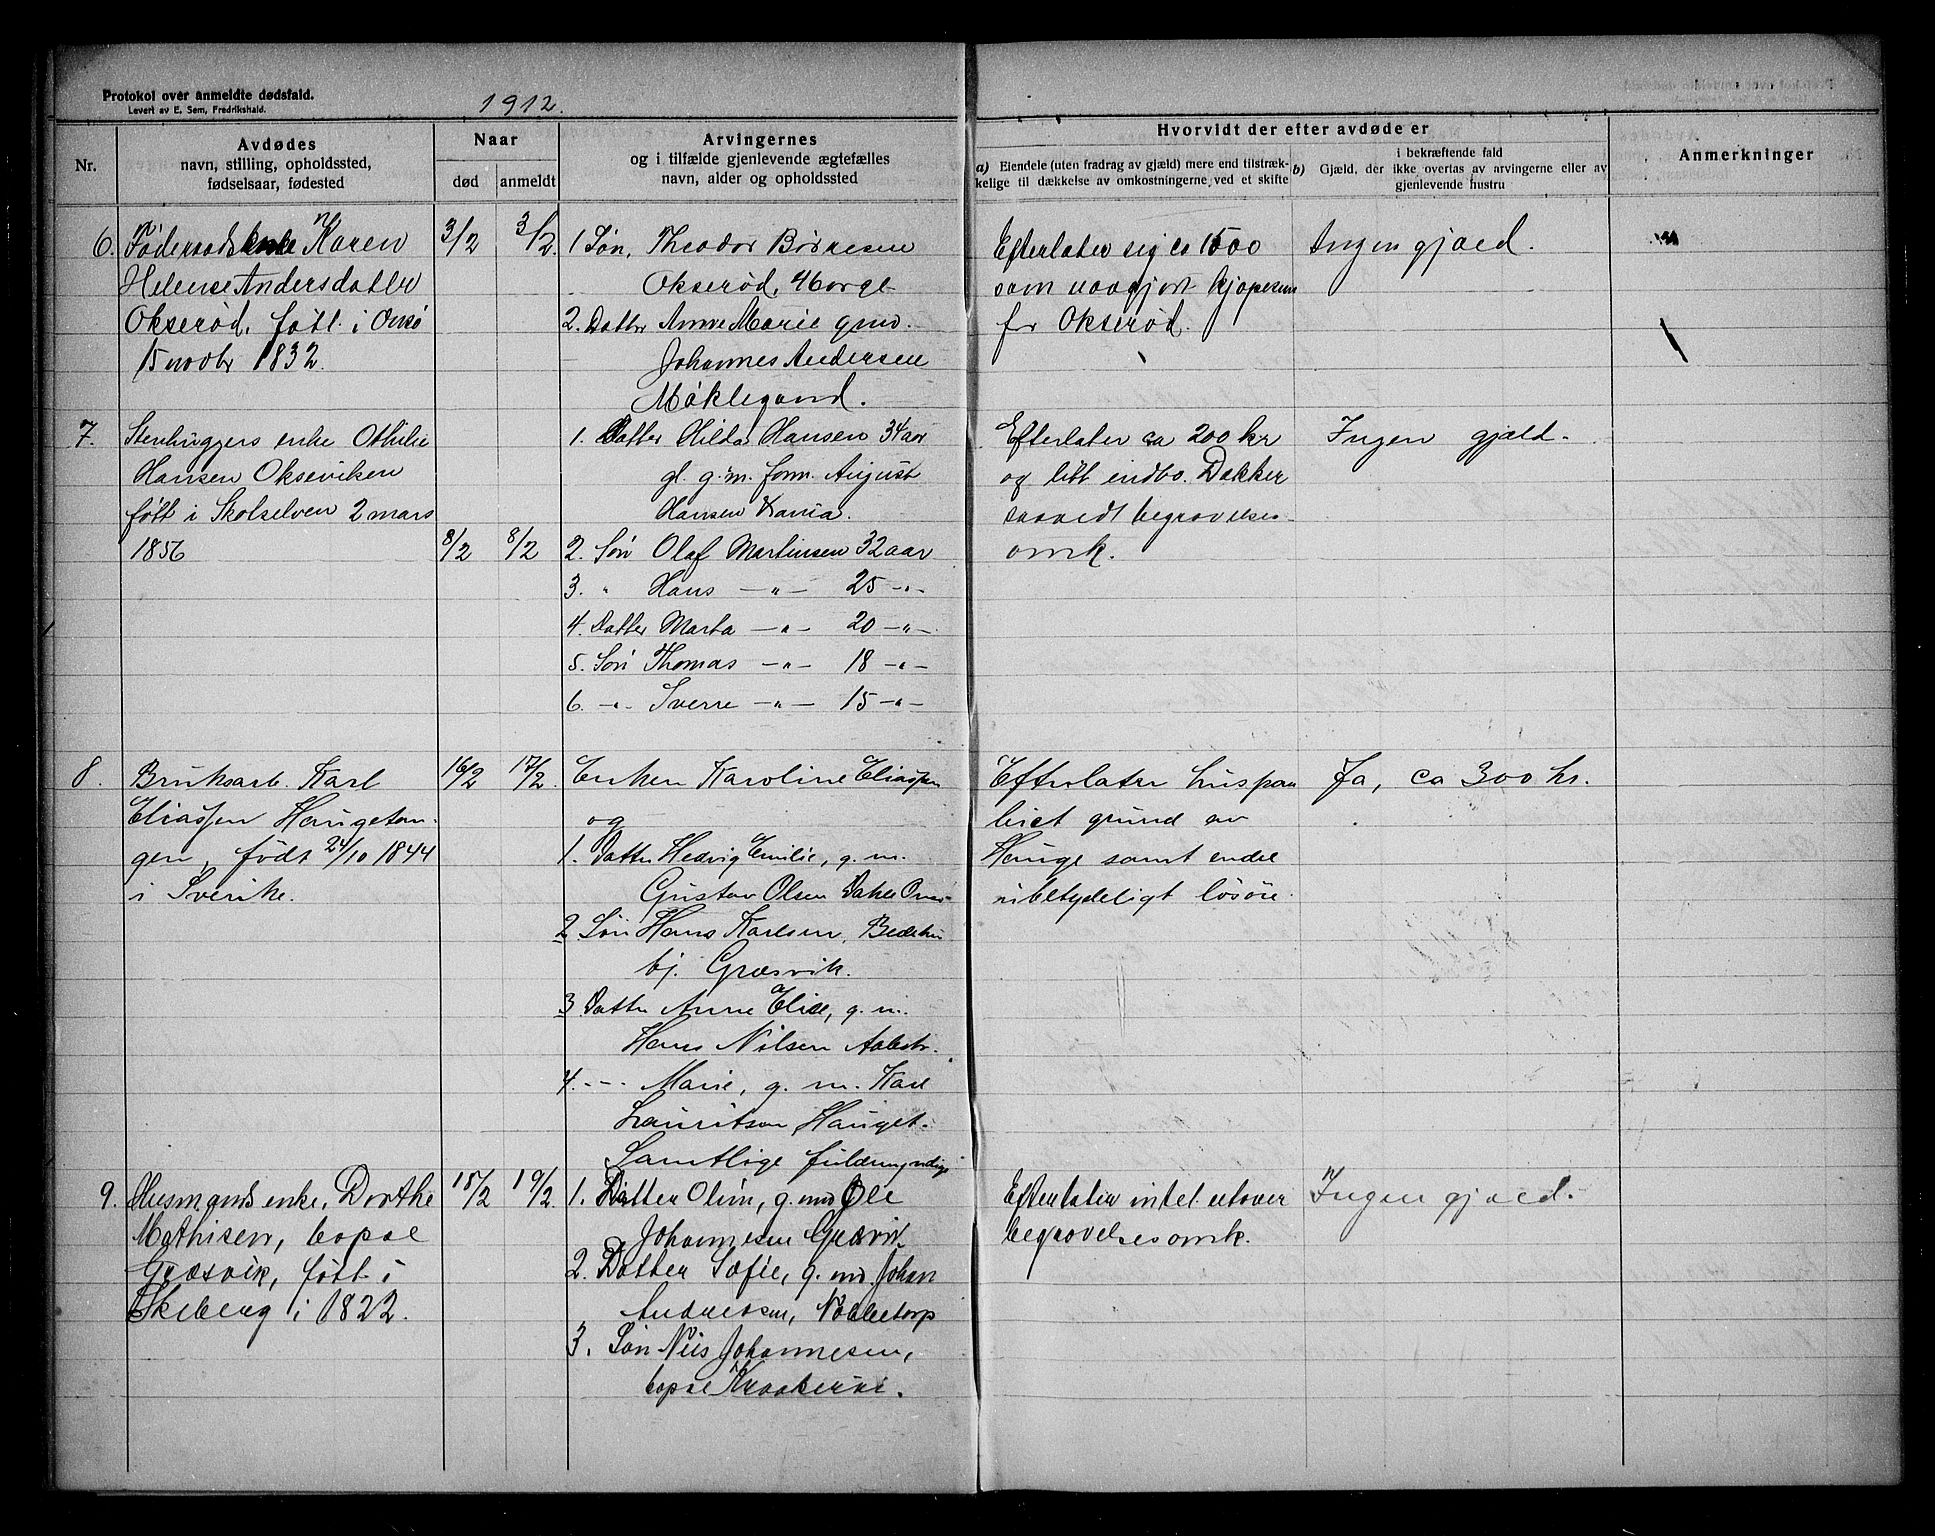 Protokol over anmeldte dødsfald.
Levert av E. Sem, Fredrikshald.
1912.
Nr.
Avdødes
navn, stilling, opholdssted,
fødselsaar, fødested
Naar
død
anmeldt
Arvingernes
og i tilfælde gjenlevende ægtefælles
navn, alder og opholdssted
Hvorvidt der efter avdøde er
a) Eiendele (uten fradrag av gjæld) mere end tilstræk-
kelige til dækkelse av omkostningerne ved et skifte
i bekræftende fald
b) Gjæld, der ikke overtas av arvingerne eller av
gjenlevende hustru
Anmerkninger
6. Føderaadsenke Karen
Helene Andersdatter
Okserød, født i Onsø
15 novbr 1832.
3/2
3/2.
1. Søn, Theodor Børresen
Okserød, Norge
2. Datter Anne Marie gm.
Johannes Andersen
Møklegaard.
Efterlater sig ca 1500
som uopgjort kjøpesum
for Okserød.
Ingen gjæld.
7. Stenhuggers enke Othilie
Hansen Okseviken
født i Skotselven 2 mars
1856
8/2
8/2
1. Datter Hilda Hansen 34 aar
gl. g.m. form. August
Hansen Dania.
2. Søn Olaf Martinsen 32 aar
3. " Hans — " — 25 — " —
4. Datter Marta — " — 20 — " —
5. Søn Thomas — " — 18 — " —
6. — " — Sverre — " — 15 — " —
Efterlater ca 200 kr
og litt indbo. Dækker
saavidt begravelses-
omk.
Ingen gjæld.
8. Bruksarb. Karl
Eliassen Haugetan-
gen, født 24/10 1844
i Sverike.
16/2
17/2.
Enken Karoline Eliassen
og
1. Datter Hedvig Emilie, g. m.
Gustav Olsen Dahle Onsø
2 Søn Hans Karlsen, Bedehus
bj. Græsvik.
3 Datter Anne Elise, g. m.
Hans Nilsen
4. - - - Marie, g. m. Karl
Lauritsen Hauget.
Samtlige fuldmyndige
Efterlater hus paa
leiet grund av
Hauge samt endel
ubetydeligt løsøre.
Ja, ca 300 kr.
9. Husmands enke, Dorthe
Mathisen, bopæl
Græsvik, født i
Skeberg i 1822.
18/2
19/2.
1. Datter Olin, g. med Ole
Johannesen Græsvik
2. Datter Sofie, g. m. Johan
Andreasen, Nabbetorp
3. Søn Nils Johannesen,
bopæl Kraakerøi.
Efterlater intet utover
begravelsesomk.
Ingen gjæld.